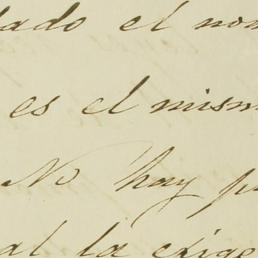 ado el nom
es el mism
No hay p
al la exige